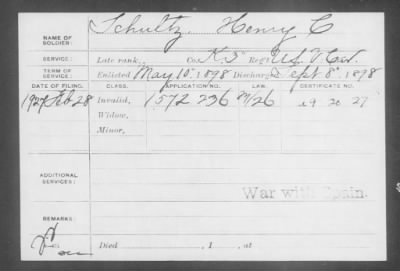 NAME OF SOLDIER: Schultz Henry C
SERVICE: Late rank, Co. K 3" Reg't U.S.V. Cav.
TERM OF SERVICE: Enlisted May 10" 1898 Discharged Sept 8", 1898
DATE OF FILING. CLASS. APPLICATION NO. LAW. CERTIFICATE NO.
1927 Feb 28 Invalid, 1572 236
Widow,
Minor,
ADDITIONAL SERVICES:
War with Spain.
REMARKS:
Died , 1 , at